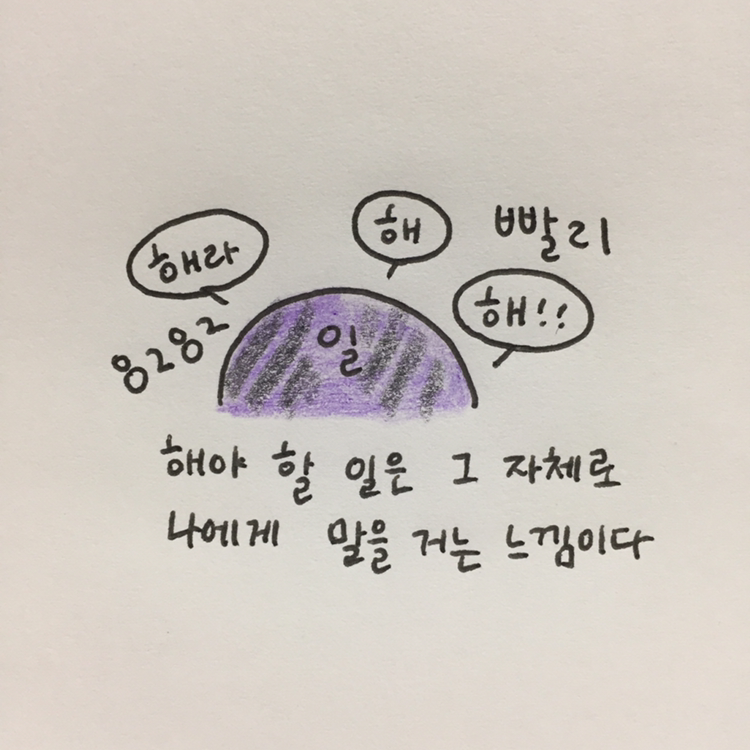 해라
해
빨리
해!!
8282
일
해야 할 일은 그 자체로
나에게 말을 거는 느낌이다